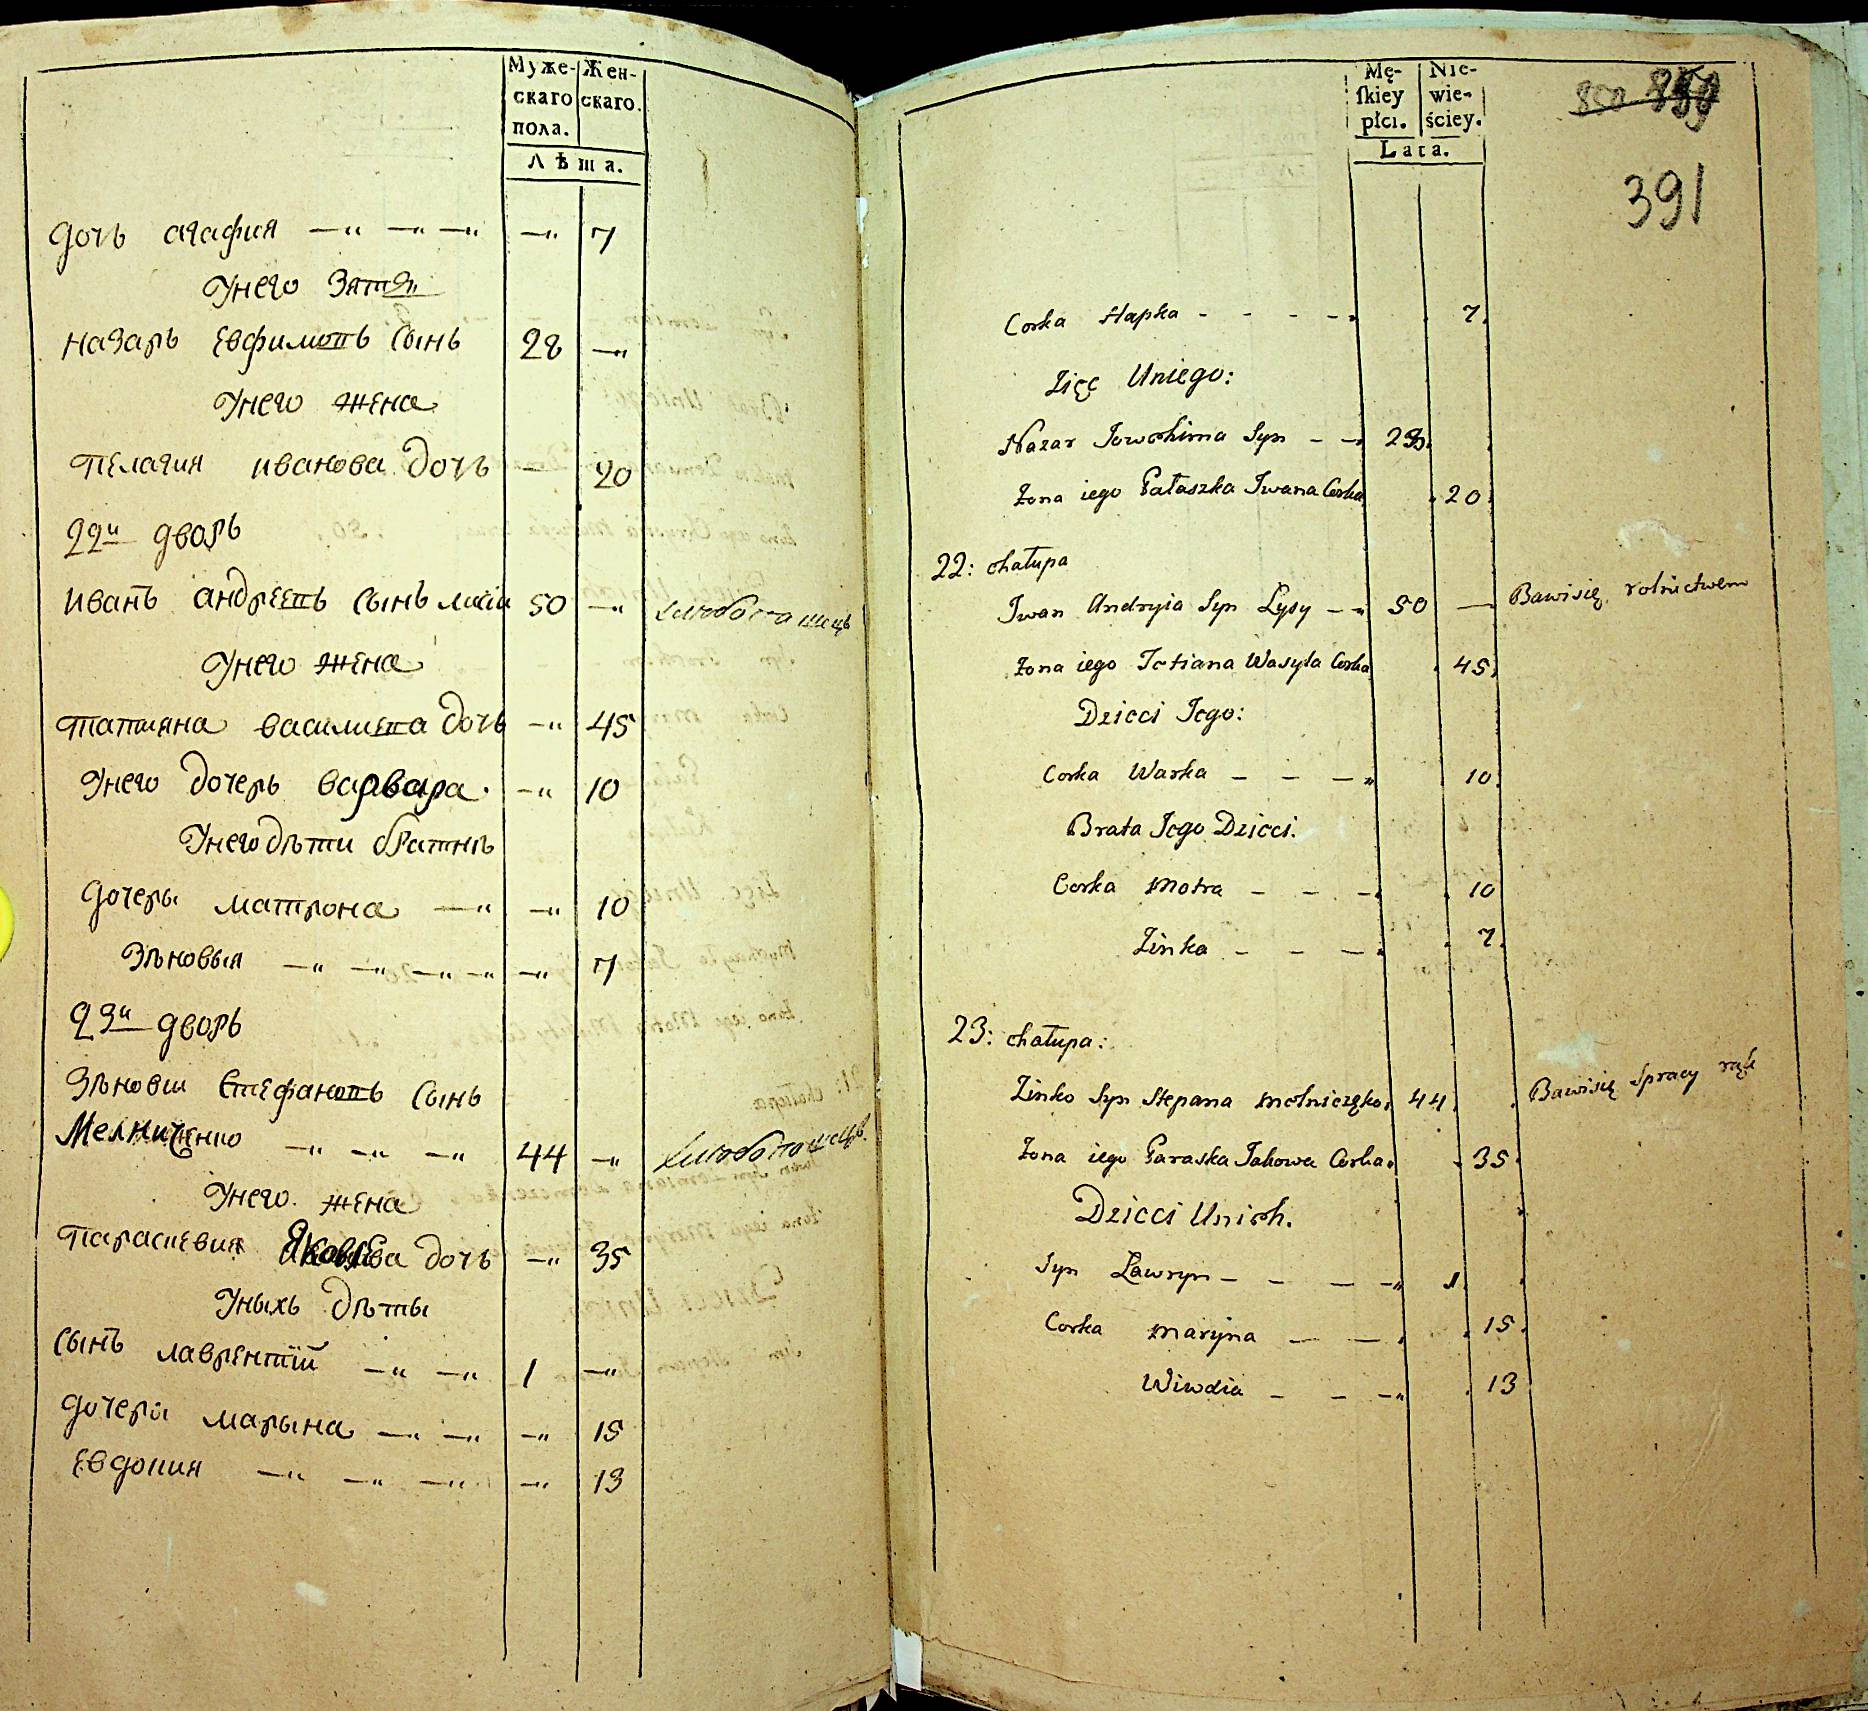 Муже- Жен-
скаго скаго.
пола.
Лѣта.
дочь агафия —„ —„ —„ —„ 7
Унего Зятя
назаръ Евфимовъ сынъ 28 —„
Унего жена
пелагия иванова дочь — 20
22й дворъ
иванъ андреевъ сынъ лисий 50 —„
Унего жена
татияна василиева дочь —„ 45
Унего дочерь варвара —„ 10
Унего дѣти братнѣ
дочеры матрона —„ —„ 10
Зѣновыя —„ —„ —„ —„ —„ 7
23й дворъ
Зѣновии Стефановъ сынъ
Мелниченко —„ —„ —„ 44 —„
Унего жена
параскевия Яковлева дочь —„ 35
Уныхъ дѣты
сынъ лаврентій —„ —„ 1 —„
дочери марына —„ —„ —„ 15
Евдокия —„ —„ —„ —„ 13
Mę- Nie-
skiey wie-
płci. ściey.
Lata.
391
Corka Hapka - - - - 7.
Zięć Uniego:
Nazar Jowchima Syn - - 28.
Żona iego Pałaszka Jwana Corka 20.
22: chałupa
Jwan Andryia Syn Łysy - - 50 — Bawisię rolnictwem
Żona iego Tatiana Wasyla Corka 45.
Dzieci Jego:
Corka Warka - - - 10.
Brata Jego Dzieci.
Corka Motra - - - 10
Zinka - - - 7.
23: chałupa:
Zinko Syn Stepana Melniczęko. 44. Bawisię Spracy rąk
Żona iego Paraska Jakowa Corka. 35.
Dzieci Unich.
Syn Ławryn - - - - 1.
Corka Maryna - - 15.
Wiwdia - - - 13